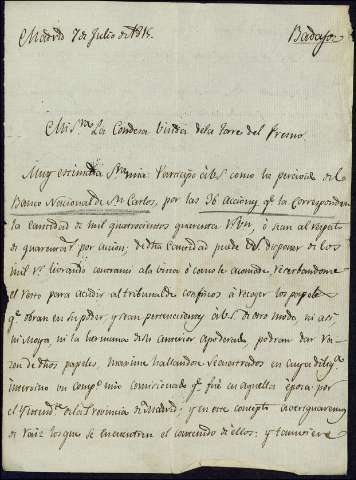 Madrid 7 de Julio de 1815. Badajoz
Mi Sra. La Condesa viuda de la Torre del Fresno
Muy estimada Sra. mia: Participo á V.S. como ha percivido del
Banco Nacional de Sn. Carlos, por las 36 acciones qe. la corresponden
la cantidad de mil quatrocientos quarenta rs. vn. ó sean al respeto
de quarenta rs. por accion: de dha. cantidad puede V.S. disponer de los
mil rs. librando contra mi á la vista ó como le acomode, reservandome
el resto para acudir al tribunal de á recoger los papeles
qe. obran en su poder, y sean pertenecientes á V.S. de otro modo ni aqi.
ni Moya, ni la hermana de su anterior Apoderado, podran dar ra-
zon de dhos. papeles, maxime hallandose Secuestrados en cuya dilija.
intervino un compo. mio comisionado qe. fue en aquella epoca por
el Yntendte. de la Provincia de Madrid; y en este concepto averiguaremos
de raiz los que se encuentren el contenido de ellos; y